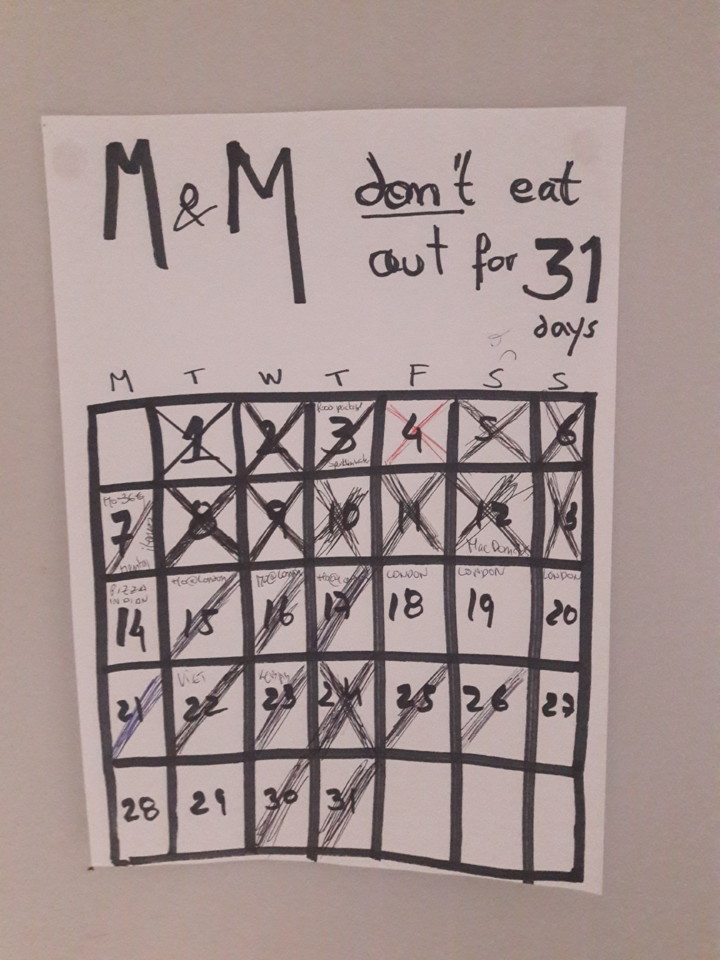 M & M don't eat
out for 31
days
M T W T F S S
1 2 3 4 5 6
7 8 9 10 11 12 13
MacDonald
PIZZA Mo@London Mo@London Mo@ LONDON LONDON LONDON
INDIAN
14 15 16 17 18 19 20
VIET
21 22 23 24 25 26 27
28 29 30 31